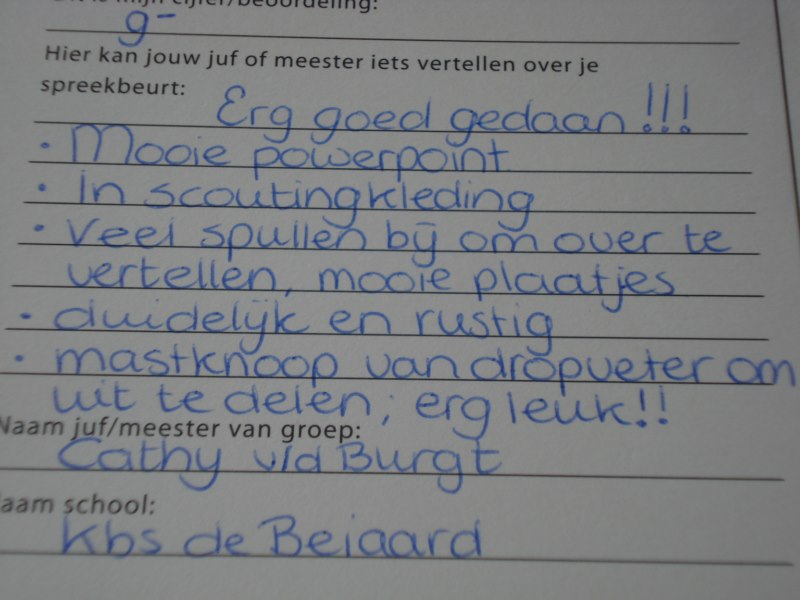 Dit is mijn cijfer/beoordeling:
g-
Hier kan jouw juf of meester iets vertellen over je
spreekbeurt: Erg goed gedaan!!!
• Mooie powerpoint
• In scoutingkleding
• Veel spullen bij om over te
vertellen, mooie plaatjes
• duidelijk en rustig
• mastknoop van dropveter om
uit te delen; erg leuk!!
Naam juf/meester van groep:
Cathy v/d Burgt
Naam school:
Kbs de Beiaard